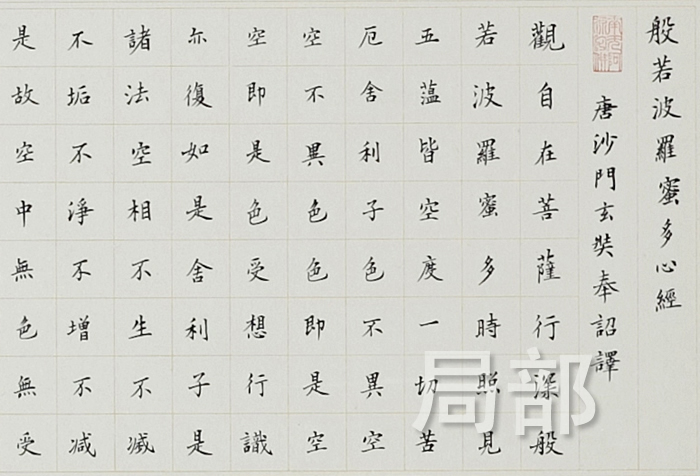 般若波羅蜜多心經
唐沙門玄奘奉詔譯
觀自在菩薩行深般
若波羅蜜多時照見
五蘊皆空度一切苦
厄舍利子色不異空
空不異色色即是空
空即是色受想行識
亦復如是舍利子是
諸法空相不生不滅
不垢不淨不增不減
是故空中無色無受
局部